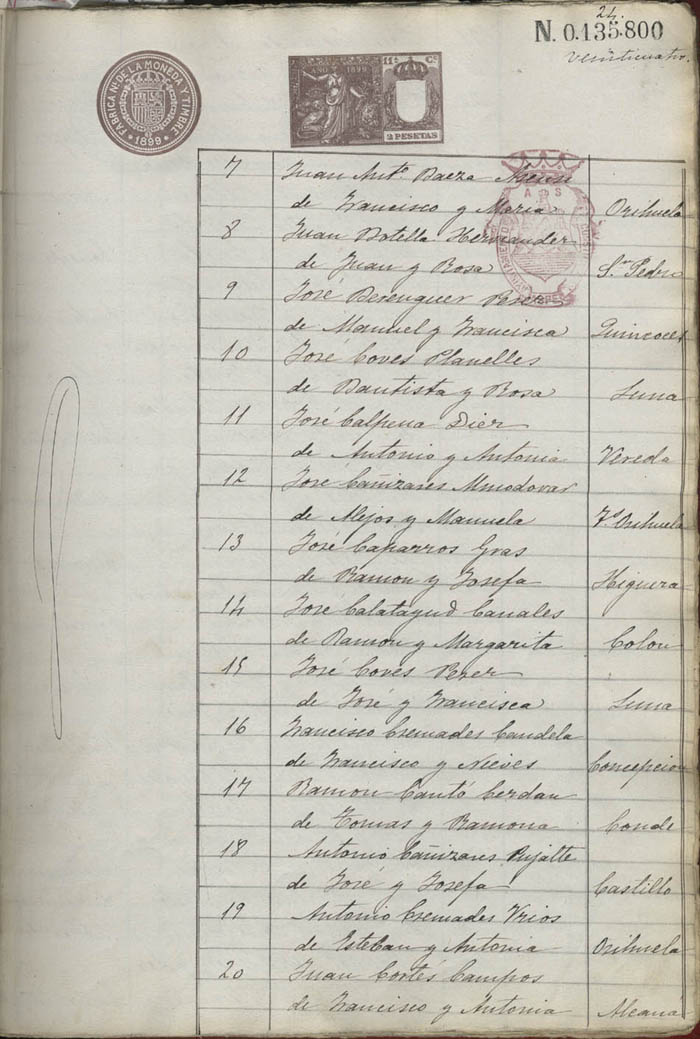 24.
N. 0.135.800
veinticuatro.
FABRICA NAL DE LA MONEDA Y TIMBRE
1899
AÑO 1899
11ª Cª
2 PESETAS
7 Juan Antº Baeza
de Francisco y Maria Orihuela
8 Juan Botella Hernandez
de Juan y Rosa Sn Pedro
9 José Berenguer Perez
de Manuel y Francisca
10 José Coves Planelles
de Bautista y Rosa Luna
11 José Calpena Diez
de Antonio y Antonia Vereda
12 José Cañizares Almodovar
de Alejos y Manuela Vª Orihuela
13 José Caparros Gras
de Ramon y Josefa Higuera
14 José Calatayud Canales
de Ramon y Margarita Colon
15 José Coves Perez
de José y Francisca Luna
16 Francisco Cremades Candela
de Francisco y Nieves Concepcion
17 Ramon Cantó Cerdan
de Tomas y Ramona Conde
18 Antonio Cañizares Pujalte
de José y Josefa Castillo
19 Antonio Cremades Vrios
de Esteban y Antonia Orihuela
20 Juan Cortés Campos
de Francisco y Antonia Alcaná